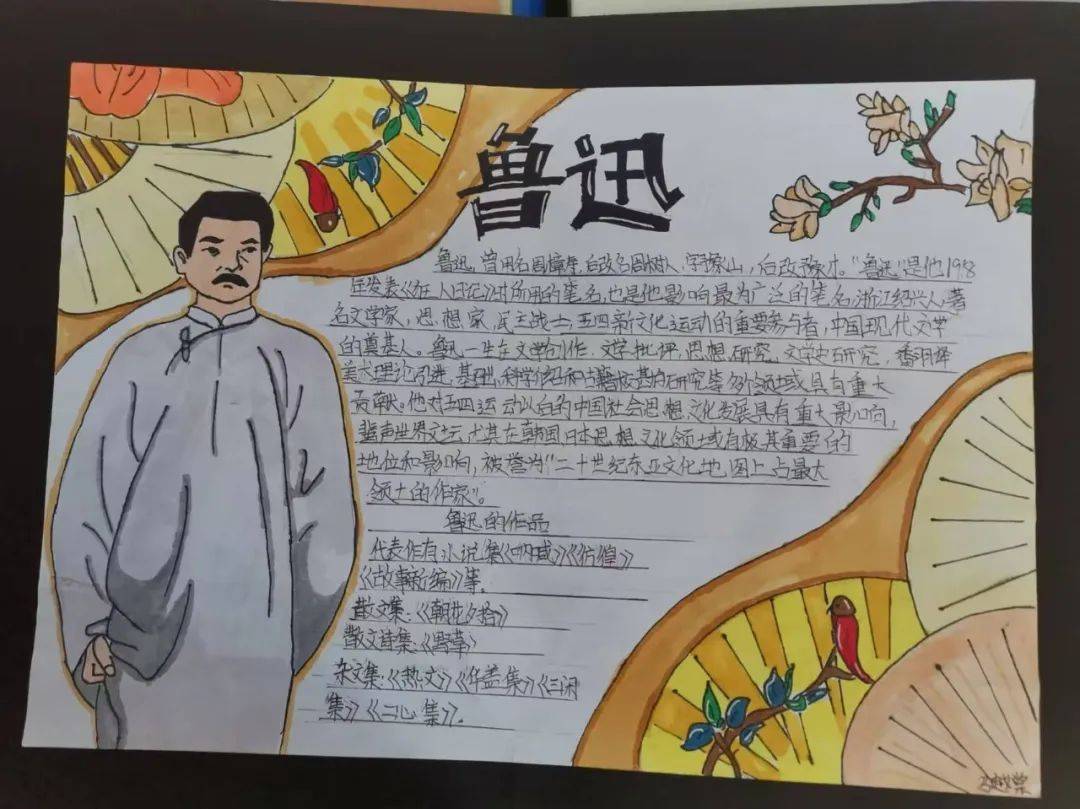 鲁迅
鲁迅，曾用名周樟寿，后改名周树人，字豫山，后改豫才。“鲁迅”是他1918
年发表《狂人日记》时所用的笔名，也是他影响最为广泛的笔名，浙江绍兴人。著
名文学家，思想家，民主战士，五四新文化运动的重要参与者，中国现代文学
的奠基人。鲁迅一生在文学创作，文学批评，思想研究，文学史研究，翻译
美术理论引进，基础科学介绍和古籍校勘与研究等多个领域具有重大
贡献。他对五四运动以后的中国社会思想文化发展具有重大影响，
蜚声世界文坛，尤其在韩国日本思想文化领域有极其重要的
地位和影响，被誉为“二十世纪东亚文化地图上占最大
领土的作家”。
鲁迅的作品
代表作有小说集《呐喊》《彷徨》
《故事新编》等。
散文集：《朝花夕拾》
散文诗集：《野草》
杂文集：《热文》《华盖集》《三闲
集》《二心集》。